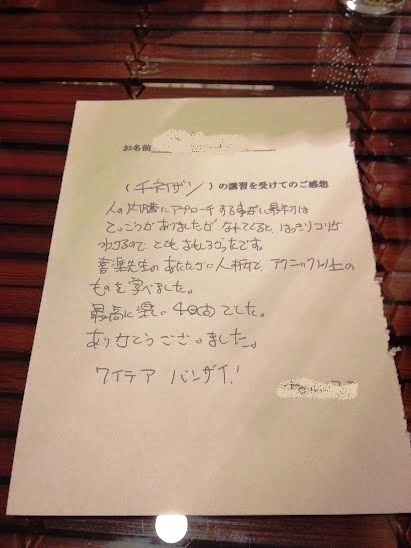 お名前
(チネイザン)の講習を受けてのご感想
人の内臓にアプローチする事に最初は
ていこうがありましたがなれてくると、はっきりコリが
わかるので とても おもしろかったです。
先生のあたたかい人柄で、テクニック以上の
ものを学べました。
最高に楽しい4日間でした。
ありがとうございました。
ワイテア バンザイ!